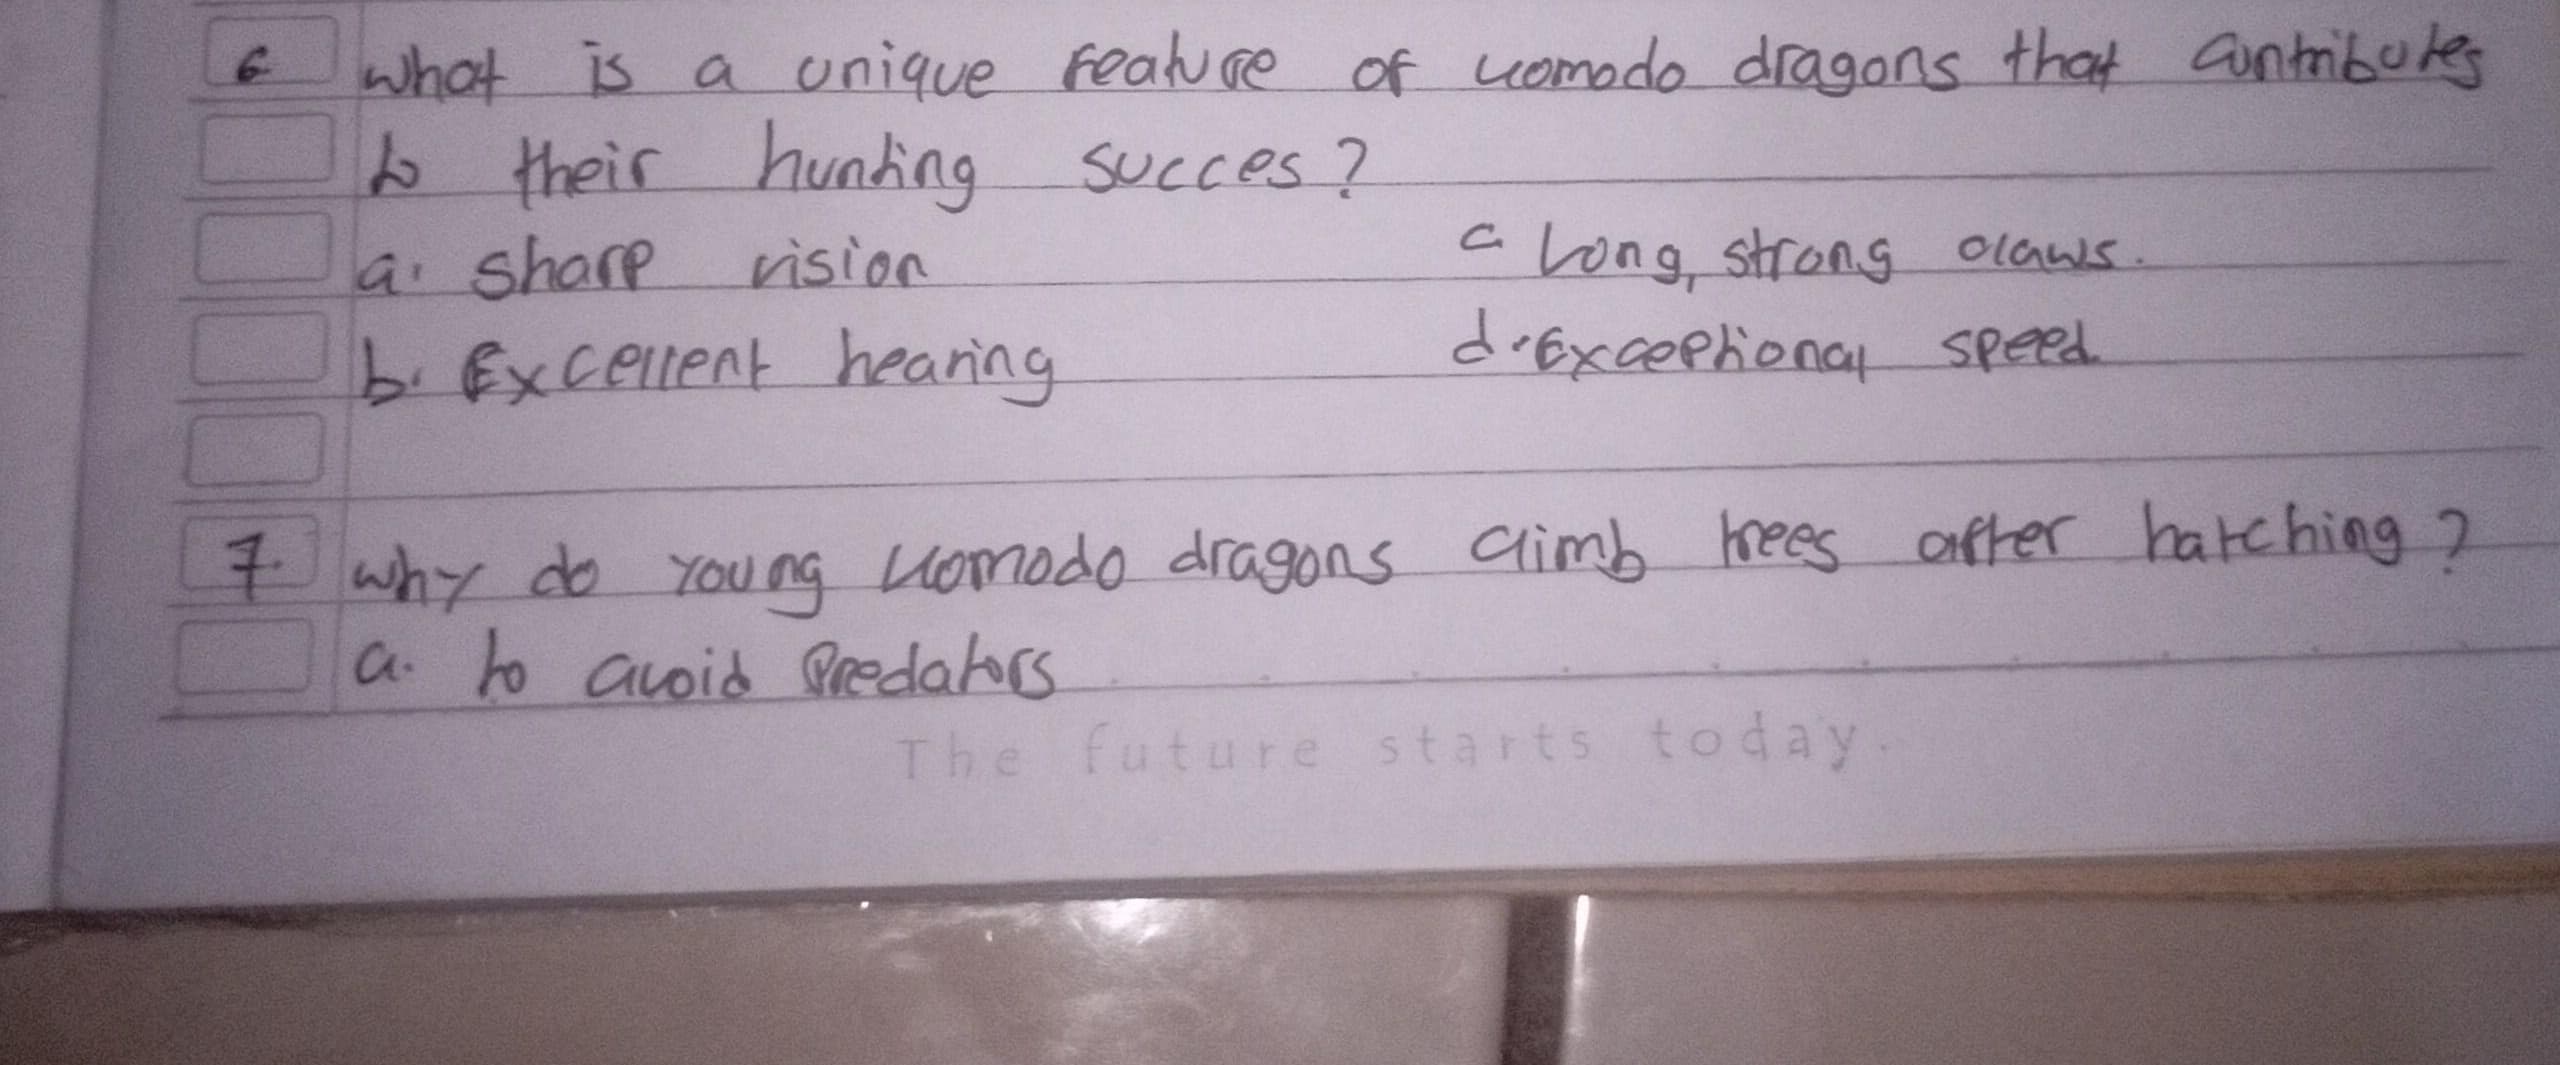 6 What is a unique feature of komodo dragons that contributes
to their hunting succes?
a. sharp vision c Long, strong claws.
b. Excellent hearing d. Exceptional speed
7. Why do young komodo dragons climb trees after hatching?
a. to avoid predators
The future starts today.